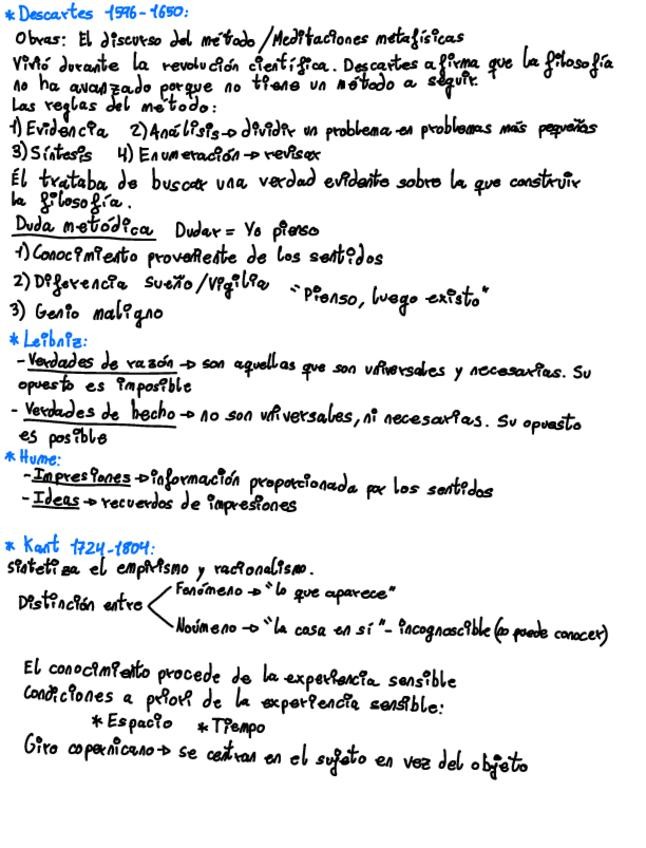 * Descartes 1596-1650:
Obras: El discurso del método / Meditaciones metafísicas
Vivió durante la revolución científica. Descartes afirma que la filosofía
no ha avanzado porque no tiene un método a seguir.
Las reglas del método:
1) Evidencia 2) Análisis → dividir un problema en problemas más pequeños
3) Síntesis 4) Enumeración → revisar
Él trataba de buscar una verdad evidente sobre la que construir
la filosofía.
Duda metódica Dudar = Yo pienso
1) Conocimiento proveniente de los sentidos
2) Diferencia sueño / vigilia "Pienso, luego existo"
3) Genio maligno
* Leibniz:
- Verdades de razón → son aquellas que son universales y necesarias. Su
opuesto es imposible
- Verdades de hecho → no son universales, ni necesarias. Su opuesto
es posible
* Hume:
- Impresiones → información proporcionada por los sentidos
- Ideas → recuerdos de impresiones
* Kant 1724-1804:
sintetiza el empirismo y racionalismo.
Fenómeno → "lo que aparece"
Distinción entre
Noúmeno → "la cosa en sí" - incognoscible (no puede conocer)
El conocimiento procede de la experiencia sensible
Condiciones a priori de la experiencia sensible:
* Espacio * Tiempo
Giro copernicano → se centran en el sujeto en vez del objeto